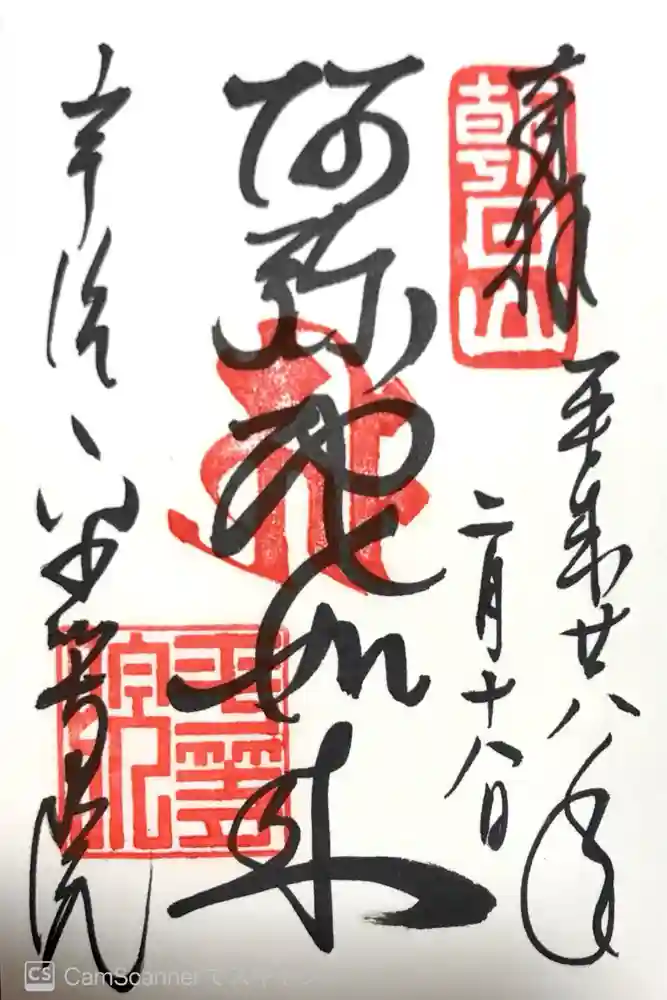 朝日山
奉拝
平成廿八年
二月十八日
阿弥陀如来
宇治
平等院
CS CamScannerでスキャン